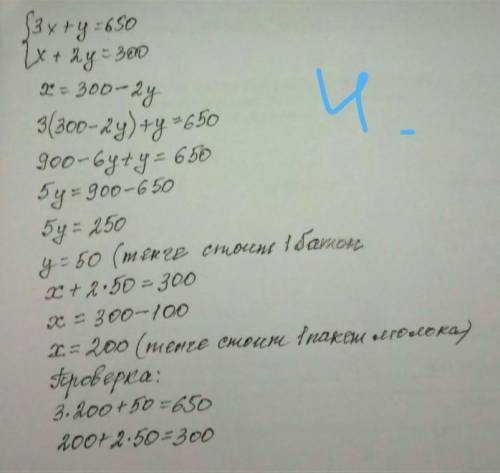 {3x + y = 650
x + 2y = 300
x = 300 - 2y
3(300 - 2y) + y = 650
900 - 6y + y = 650
5y = 900 - 650
5y = 250
y = 50 (тенге стоит 1 батон
x + 2·50 = 300
x = 300 - 100
x = 200 (тенге стоит 1 пакет молока)
Проверка:
3·200 + 50 = 650
200 + 2·50 = 300
4-